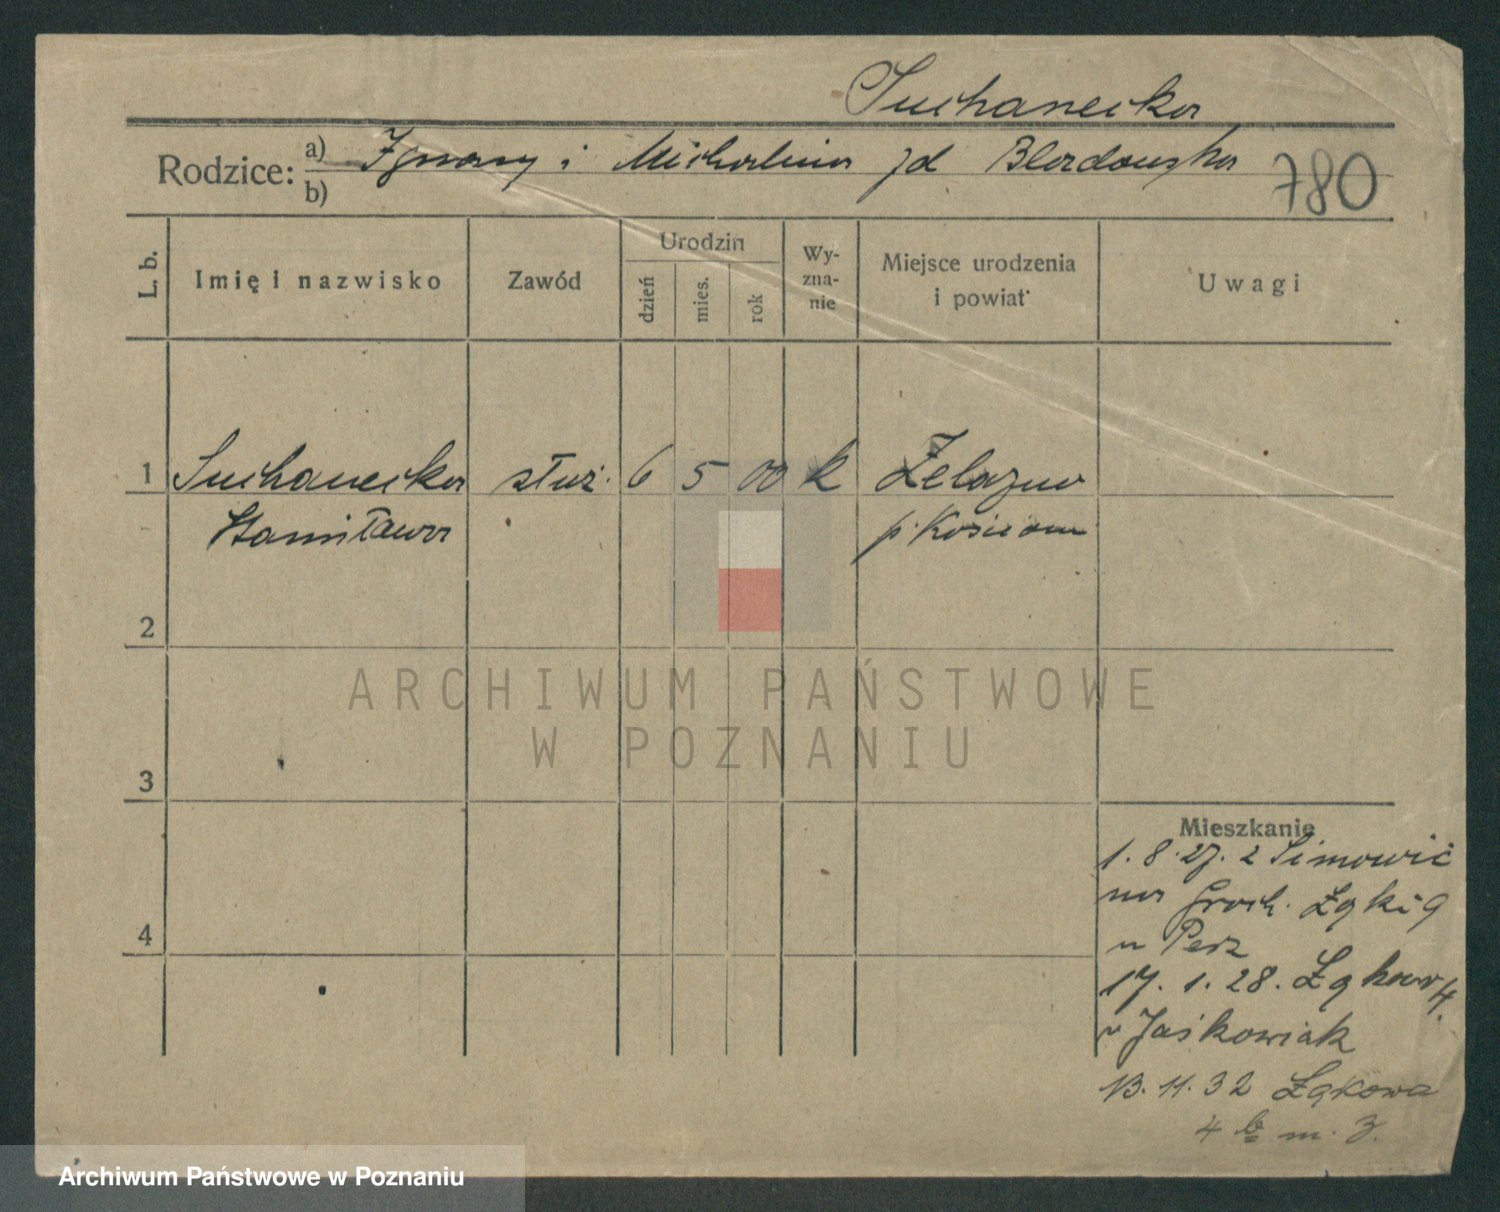 Suchanecka
Rodzice: a) Ignacy i Michalina zd Blordowska
b)
780
L. b. Imię i nazwisko Zawód Urodzin dzień mies. rok Wyznanie Miejsce urodzenia i powiat Uwagi
1 Suchanecka służ. 6 5 00 k Żelazno
Stanisława p. Kościan
2
3
4
Mieszkanie
1. 8. 27. z
Groch. Łąki 9
u Perz
17. 1. 28. Łąkowa 4.
u Jaśkowiak
13. 11. 32 Łąkowa
4 b m. 3.
ARCHIWUM PAŃSTWOWE
W POZNANIU
Archiwum Państwowe w Poznaniu